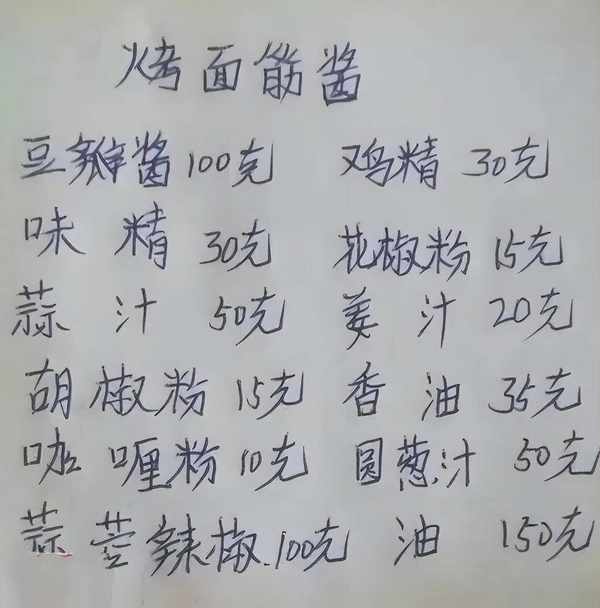 烤面筋酱
豆瓣酱100克 鸡精 30克
味精 30克 花椒粉 15克
蒜汁 50克 姜汁 20克
胡椒粉 15克 香油 35克
咖喱粉 10克 圆葱汁 50克
蒜蓉辣椒.100克 油 150克